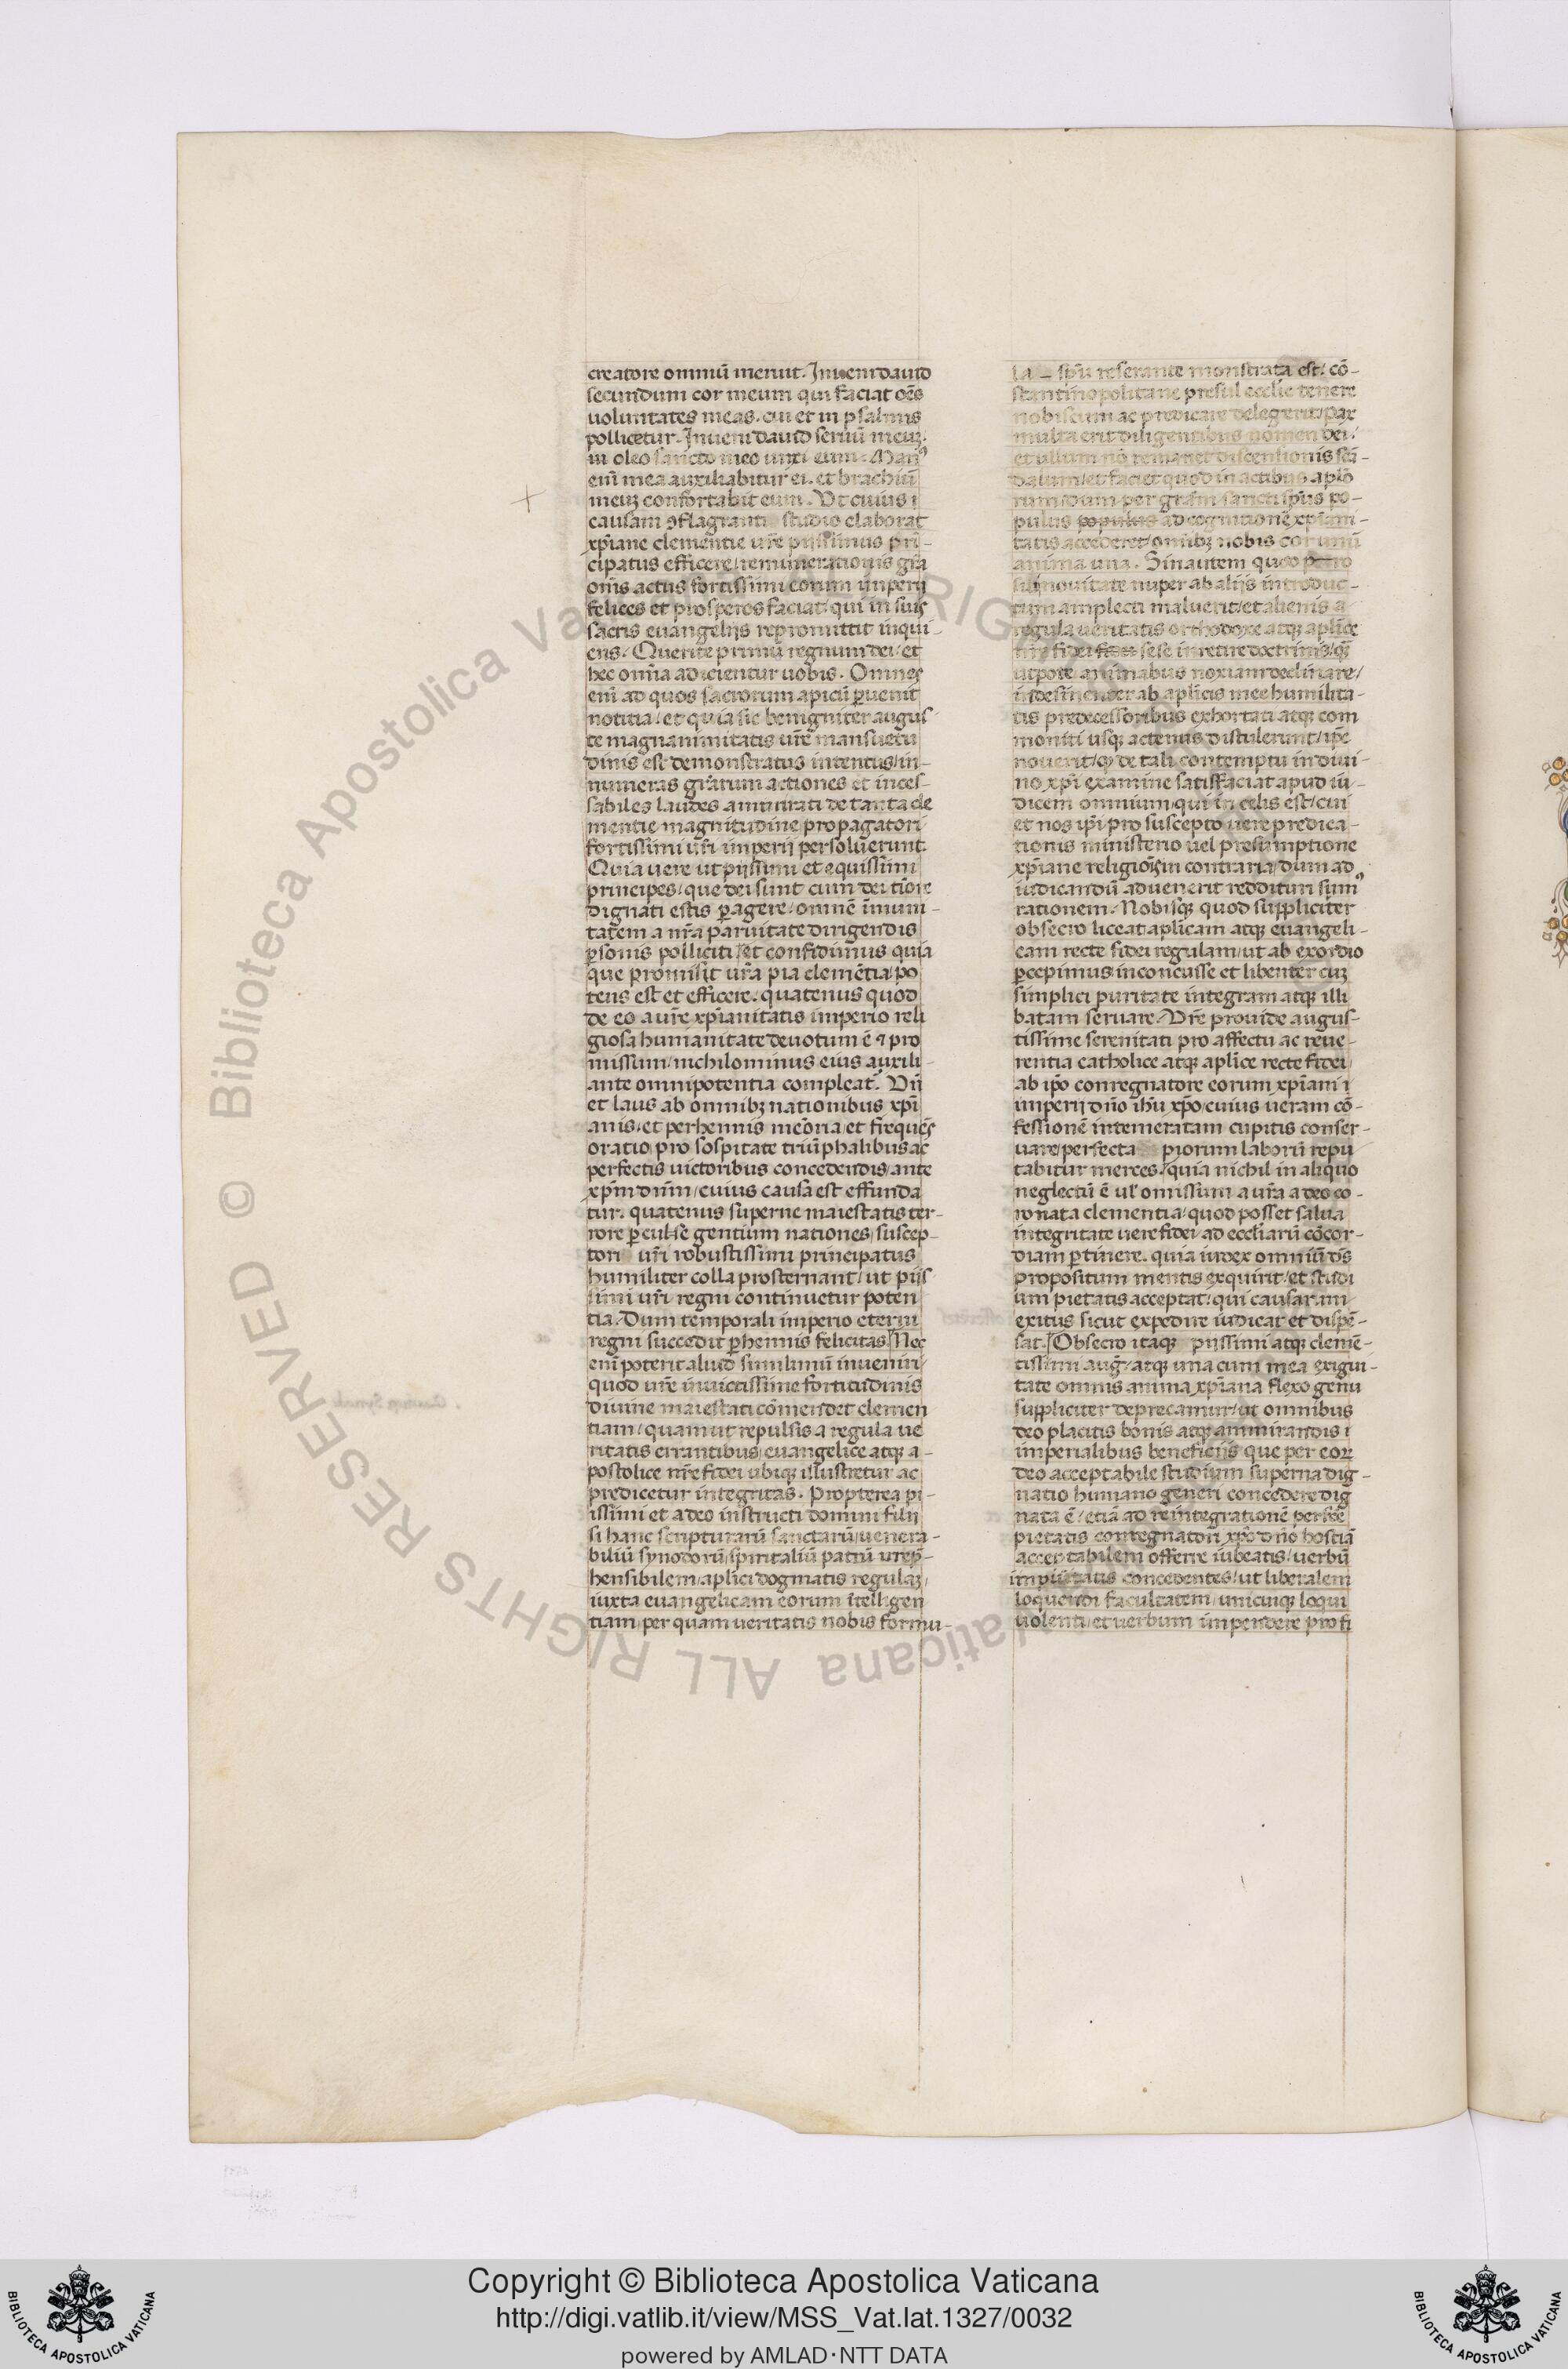 creatore omniū meruit. Inveni david
secundum cor meum qui faciat oēs
voluntates meas. cui et in psalmis
pollicetur. Inveni david servū meuʒ.
in oleo sancto meo unxi eum. Manꝰ
enī mea auxiliabitur ei. et brachiū
meuʒ confortabit eum. Ut cuius i
causam ꝯflagranti studio elaborat
xp̄iane clementie vr̄e piissimus pri-
cipatus efficere/remunerationis gr̄a
oīs actus fortissimi eorum imperii
felices et prosperos faciat/ qui in suis
sacris evangeliis repromittit inqui-
ens/ Querite primū regnum dei/ et
hec omīa adicientur vobis. Omnes
enī ad quos sacrorum apicū ꝑvenit
notitia/ et quia sic benigniter augus-
te magnanimitatis vr̄e mansuetu
dinis est demonstratus intentus/in-
numeras gratum actiones et inces-
sabiles laudes ammirati de tanta cle
mentie magnitudine/propagatori
fortissimi vr̄i imperii persolverunt.
Quia vere ut piissimi et equissimi
principes/ que dei sunt cum dei tīore
dignati estis ꝑagere/ omnē īmuni-
tatem a nr̄a parvitate dirigendis
ꝑsonis polliciti/ et confidimus quia
que promisit vr̄a pia clemētia/ po
tens est et efficere. quatenus quod
de eo a vr̄e xp̄ianitatis imperio reli
giosa humanitate devotum ē ⁊ pro
missum/nichilominus eius auxili-
ante omnipotentia compleat̄. Uñ
et laus ab omnibʒ nationibus xp̄i
anis/et perhennis meōria/et frequēs
oratio/pro sospitate triūphalibus ac
perfectis victoribus concedendis/ante
xp̄m dñm/cuius causa est effunda
tur. quatenus superne maiestatis ter-
rore ꝑculse gentium nationes/suscep-
tori vr̄i robustissimi principatus
humiliter colla prosternant/ut piis
simi vr̄i regni continuetur poten
tia. Dum temporali imperio eterni
regni succedit ꝑhennis felicitas. Nec
enī poterit aliud simillimū inveniri/
quod vr̄e invictissime fortitudinis
divine maiestati cōmendet clemen
tiam/quam ut repulsis a regula ve
ritatis errantibus/evangelice atqꝫ a-
postolice nr̄e fidei ubiqꝫ illustretur ac
predicetur integritas. Propterea pi-
issimi et a deo instructi domini filii
si hanc scripturarū sanctarū/venera-
biliū synodorū/spiritaliū patrū irrep̄-
hensibilem/aplici dogmatis regulaʒ/
iuxta evangelicam eorum ītelligen
tiam/per quam veritatis nobis formu-
la – spū reserante monstrata est/ cō-
stantinopolitane presul eccl̄ie tenere
nobiscum ac predicare delegerit/ pax
multa erit diligentibus nomen dei/
et ullum nō remanet discensionis scā-
dalum/et faciet quod in actibus aplō
rum/dum per gr̄am sancti spūs po-
pulus populus ad cognitionē xp̄iani-
tatis accederet/omībʒ nobis cor unū
anima una. Sin autem quod ptrio
sili novitate nuper ab aliis introduc-
tum amplecti maluerit/et alienis a
regula veritatis orthodoxe atqꝫ aplice
nr̄e fidei fidei sese irretire doctrinis/qꝫ
utpote animabus noxiam declinare/
indesinenter ab aplicis mee humilita-
tis predecessoribus exhortati atqꝫ com
moniti usqꝫ actenus distulerunt/ ipe
noverit/ qꝫ de tali contemptu in divi-
no xp̄i examine satisfaciat apud iu-
dicem omnium/qui in celis est/cui
et nos ip̄i pro suscepto vere predica-
tionis ministerio vel presumptione
xp̄iane religioīs in contraria/ dum ad
iudicandū advenerit reddituri sumꝰ
rationem. Nobisqꝫ quod suppliciter
obsecro liceat aplicam atqꝫ evangeli-
cam recte fidei regulam/ut ab exordio
ꝑcepimus inconcusse et libenter cuʒ
simplici puritate integram atqꝫ illi
batam servare. Vr̄e provide augus-
tissime serenitati pro affectu ac reve-
rentia catholice atqꝫ aplice recte fidei/
ab ipō conregnatore eorum xp̄iani i
imperii dño ihū xp̄o/cuius veram cō-
fessionē intemeratam cupitis conser-
vare/perfecta piorum laborū repu
tabitur merces/ quia nichil in aliquo
neglectū ē vꝉ omissum a vr̄a a deo co-
ronata clementia/quod posset salva
integritate vere fidei/ad eccl̄iarū cōcor-
diam ꝑtinere. quia iudex omniū dīs
propositum mentis exquirit/et studi
um pietatis acceptat/qui causarum
exitus sicut expedire iudicat et dispē-
sat. Obsecro itaqꝫ piissimi atqꝫ clemē-
tissimi aug̃/atqꝫ una cum mea exigui-
tate omnis anima xp̄iana flexo genu
suppliciter deprecamur/ut omnibus
deo placitis bonis atqꝫ ammirandis i
imperialibus beneficiis que per eoꝝ
deo acceptabile studium superna dig-
natio humano generi concedere dig
nata ē/etiā ad reintegrationē perfcē
pietatis contegnatori xp̄o dño hostiā
acceptabilem offerre iubeatis/verbū
impūitatis concedentes/ut liberalem
loquendi facultatem/unicuiqꝫ loqui
volenti/et verbum impendere pro fi
Copyright © Biblioteca Apostolica Vaticana
http://digi.vatlib.it/view/MSS_Vat.lat.1327/0032
powered by AMLAD·NTT DATA
BIBLIOTECA APOSTOLICA VATICANA
BIBLIOTECA APOSTOLICA VATICANA
© Biblioteca Apostolica Vaticana ALL RIGHTS RESERVED